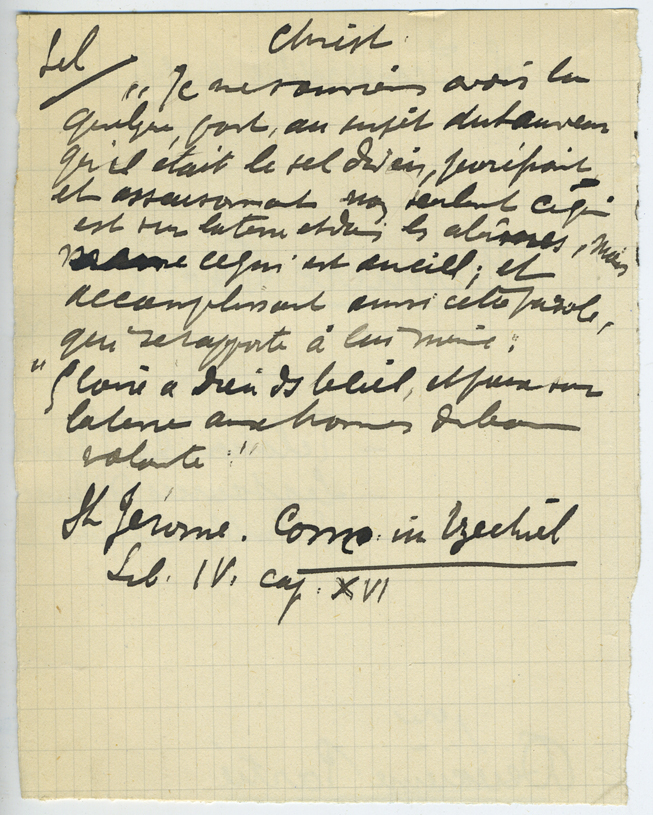 Christ
Sel
"Je me souviens avoir lu
quelque part, au sujet du Sauveur
qu'il était le sel divin, purifiant
et assaisonnant non seulemt ce qui
est sur la terre et dans les abîmes, mais
ce qui est au ciel ; et
accomplissant aussi cette parole,
qui se rapporte à lui même :
"Gloire a Dieu ds le ciel, et paix sur
la terre aux hommes de bonne
volonté"
St Jérome. Com. in Ezechiel
Lib. IV. cap. XVI